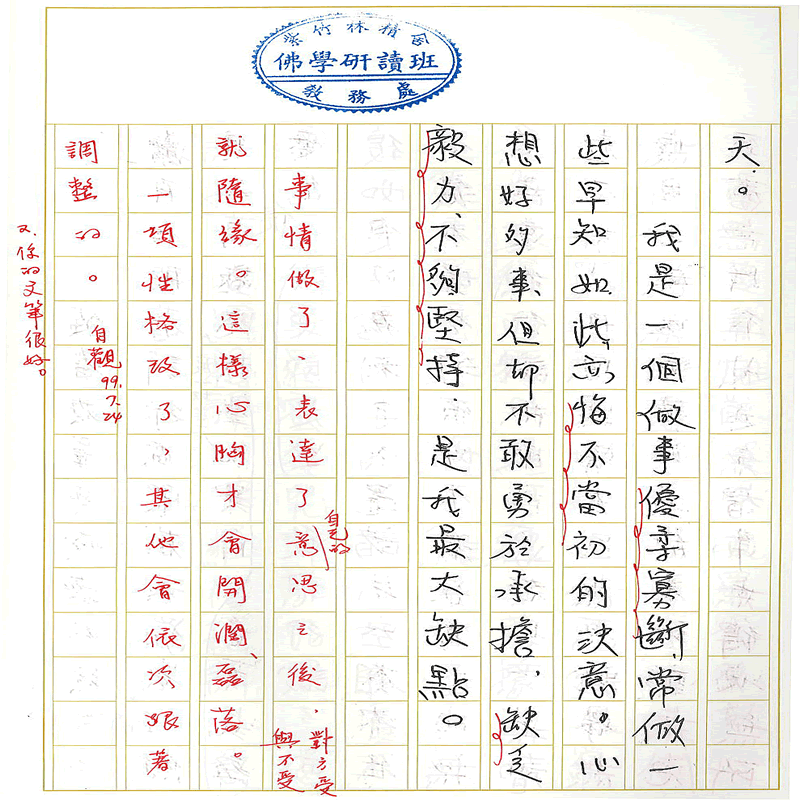 紫竹林精舍
佛學研讀班
教務處
天。
我是一個做事優柔寡斷,常做一
些早知如此,亦悔不當初的決意。心
想好多事、但却不敢勇於承擔,缺乏
毅力、不夠堅持.是我最大缺點。
事情做了、表達了自己的意思之後,對方受
與不受
就隨緣。這樣心胸才會開濶、磊落。
一項性格改了,其他會依次跟著
調整的。
自觀
99.
7.
24
又.你的文筆很好。